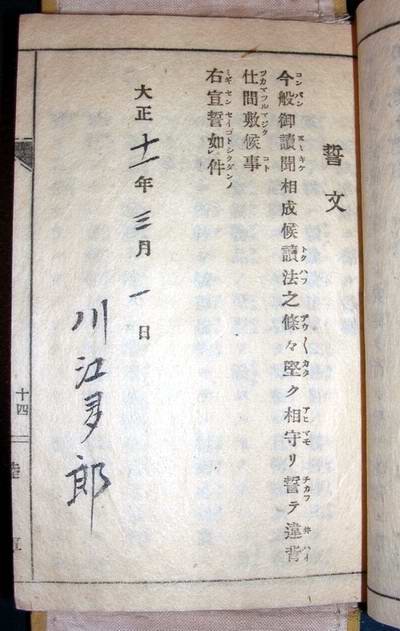 誓文
今般御讀聞相成候讀法之條々堅ク相守リ誓テ違背
仕間敷候事
右宣誓如件
大正十一年三月一日
川江多郎
十四
陸軍